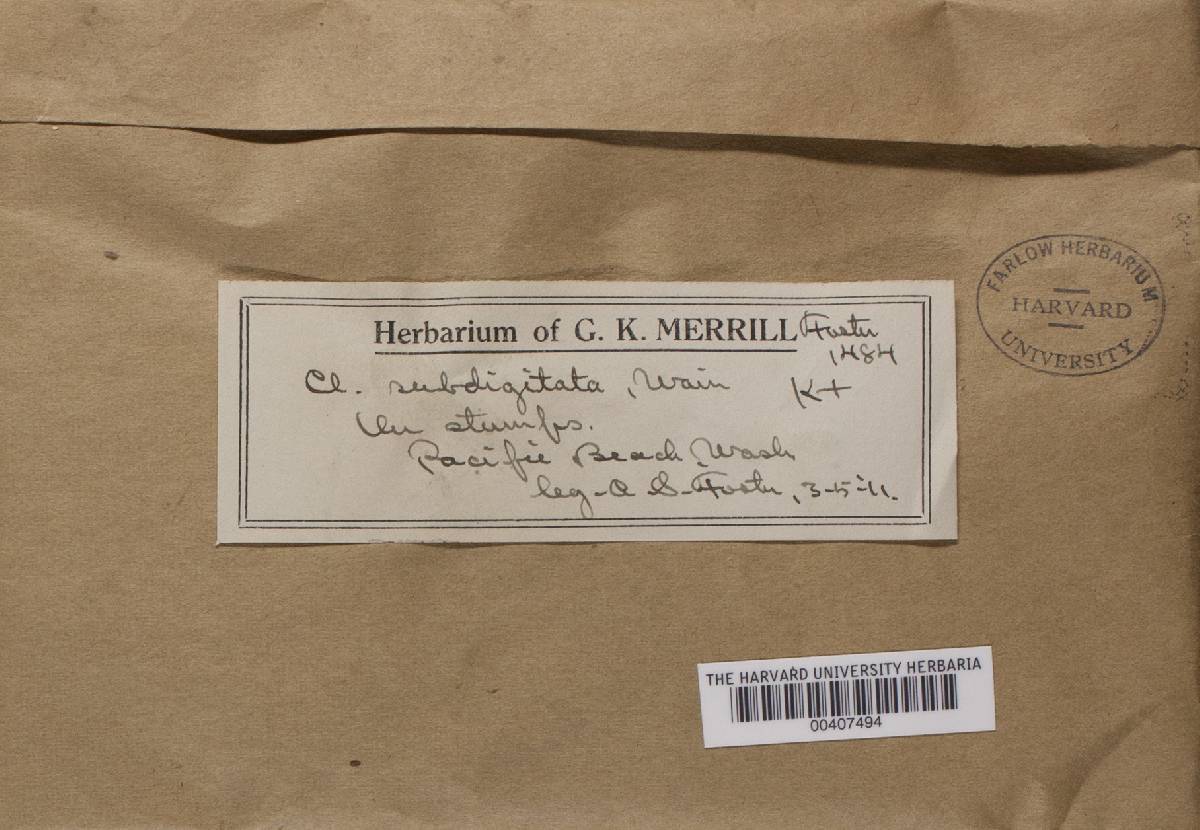 FARLOW HERBARIUM
HARVARD
UNIVERSITY
Herbarium of G. K. MERRILL Foster
1484
Cl. subdigitata, Wain K+
On stumps.
Pacific Beach, Wash
leg-A S. Foster, 3-5-'11.
THE HARVARD UNIVERSITY HERBARIA
00407494